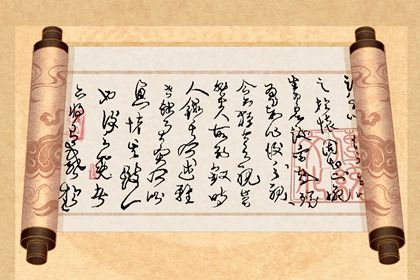 之於懷固知一死
生為虛誕齊彭殤
為妄作後之視
今亦猶今之視昔
悲夫故列敘時
人錄其所述雖
世殊事異所以
興懷其致一也
後之覽者
亦將有感於斯